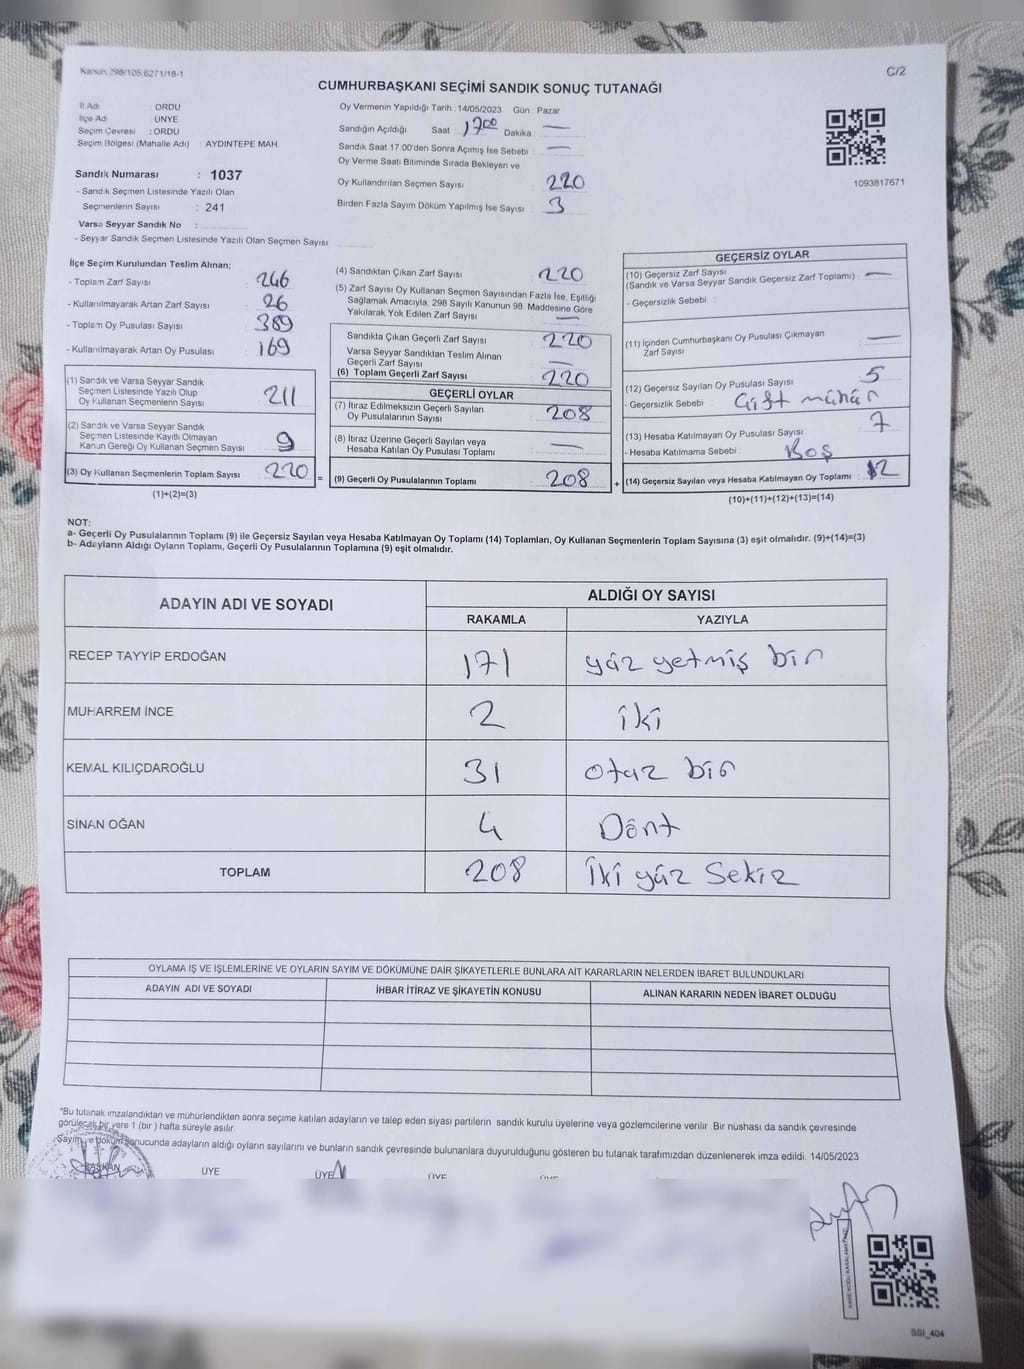 Kanun 298/105,6271/18-1
C/2
CUMHURBAŞKANI SEÇİMİ SANDIK SONUÇ TUTANAĞI
İl Adı : ORDU
İlçe Adı : ÜNYE
Seçim Çevresi : ORDU
Seçim Bölgesi (Mahalle Adı) : AYDINTEPE MAH.
Sandık Numarası : 1037
- Sandık Seçmen Listesinde Yazılı Olan
Seçmenlerin Sayısı : 241
Varsa Seyyar Sandık No :
- Seyyar Sandık Seçmen Listesinde Yazılı Olan Seçmen Sayısı
Oy Vermenin Yapıldığı Tarih : 14/05/2023 Gün : Pazar
Sandığın Açıldığı Saat 17 00 Dakika : —
Sandık Saat 17.00'den Sonra Açımış İse Sebebi : —
Oy Verme Saati Bitiminde Sırada Bekleyen ve
Oy Kullandırılan Seçmen Sayısı : 220
Birden Fazla Sayım Döküm Yapılmış İse Sayısı : 3
1093817671
İlçe Seçim Kurulundan Teslim Alınan;
- Toplam Zarf Sayısı : 246
- Kullanılmayarak Artan Zarf Sayısı : 26
- Toplam Oy Pusulası Sayısı : 389
- Kullanılmayarak Artan Oy Pusulası : 169
(1) Sandık ve Varsa Seyyar Sandık
Seçmen Listesinde Yazılı Olup
Oy Kullanan Seçmenlerin Sayısı : 211
(2) Sandık ve Varsa Seyyar Sandık
Seçmen Listesinde Kayıtlı Olmayan
Kanun Gereği Oy Kullanan Seçmen Sayısı : 9
(3) Oy Kullanan Seçmenlerin Toplam Sayısı : 220 =
(1)+(2)=(3)
(4) Sandıktan Çıkan Zarf Sayısı : 220
(5) Zarf Sayısı Oy Kullanan Seçmen Sayısından Fazla İse, Eşitliği
Sağlamak Amacıyla; 298 Sayılı Kanunun 98. Maddesine Göre
Yakılarak Yok Edilen Zarf Sayısı : —
Sandıkta Çıkan Geçerli Zarf Sayısı : 220
Varsa Seyyar Sandıktan Teslim Alınan
Geçerli Zarf Sayısı : —
(6) Toplam Geçerli Zarf Sayısı : 220
GEÇERLİ OYLAR
(7) İtiraz Edilmeksizin Geçerli Sayılan
Oy Pusulalarının Sayısı : 208
(8) İtiraz Üzerine Geçerli Sayılan veya
Hesaba Katılan Oy Pusulası Toplamı : —
(9) Geçerli Oy Pusulalarının Toplamı : 208 +
GEÇERSİZ OYLAR
(10) Geçersiz Zarf Sayısı : —
(Sandık ve Varsa Seyyar Sandık Geçersiz Zarf Toplamı)
- Geçersizlik Sebebi :
(11) İçinden Cumhurbaşkanı Oy Pusulası Çıkmayan
Zarf Sayısı : —
(12) Geçersiz Sayılan Oy Pusulası Sayısı : 5
- Geçersizlik Sebebi : Çift mühür
(13) Hesaba Katılmayan Oy Pusulası Sayısı : 7
- Hesaba Katılmama Sebebi : Boş
(14) Geçersiz Sayılan veya Hesaba Katılmayan Oy Toplamı : 12
(10)+(11)+(12)+(13)=(14)
NOT:
a- Geçerli Oy Pusulalarının Toplamı (9) ile Geçersiz Sayılan veya Hesaba Katılmayan Oy Toplamı (14) Toplamları, Oy Kullanan Seçmenlerin Toplam Sayısına (3) eşit olmalıdır. (9)+(14)=(3)
b- Adayların Aldığı Oyların Toplamı, Geçerli Oy Pusulalarının Toplamına (9) eşit olmalıdır.
ADAYIN ADI VE SOYADI
ALDIĞI OY SAYISI
RAKAMLA YAZIYLA
RECEP TAYYİP ERDOĞAN 171 yüz yetmiş bir
MUHARREM İNCE 2 iki
KEMAL KILIÇDAROĞLU 31 otuz bir
SİNAN OĞAN 4 Dört
TOPLAM 208 iki yüz Sekiz
OYLAMA İŞ VE İŞLEMLERİNE VE OYLARIN SAYIM VE DÖKÜMÜNE DAİR ŞİKAYETLERLE BUNLARA AİT KARARLARIN NELERDEN İBARET BULUNDUKLARI
ADAYIN ADI VE SOYADI İHBAR İTİRAZ VE ŞİKAYETİN KONUSU ALINAN KARARIN NEDEN İBARET OLDUĞU
*Bu tutanak imzalandıktan ve mühürlendikten sonra seçime katılan adayların ve talep eden siyasi partilerin sandık kurulu üyelerine veya gözlemcilerine verilir. Bir nüshası da sandık çevresinde
görülecek bir yere 1 (bir) hafta süreyle asılır.
Sayım ve döküm sonucunda adayların aldığı oyların sayılarını ve bunların sandık çevresinde bulunanlara duyurulduğunu gösteren bu tutanak tarafımızdan düzenlenerek imza edildi. 14/05/2023
BAŞKAN ÜYE ÜYE ÜYE ÜYE
SSI_404